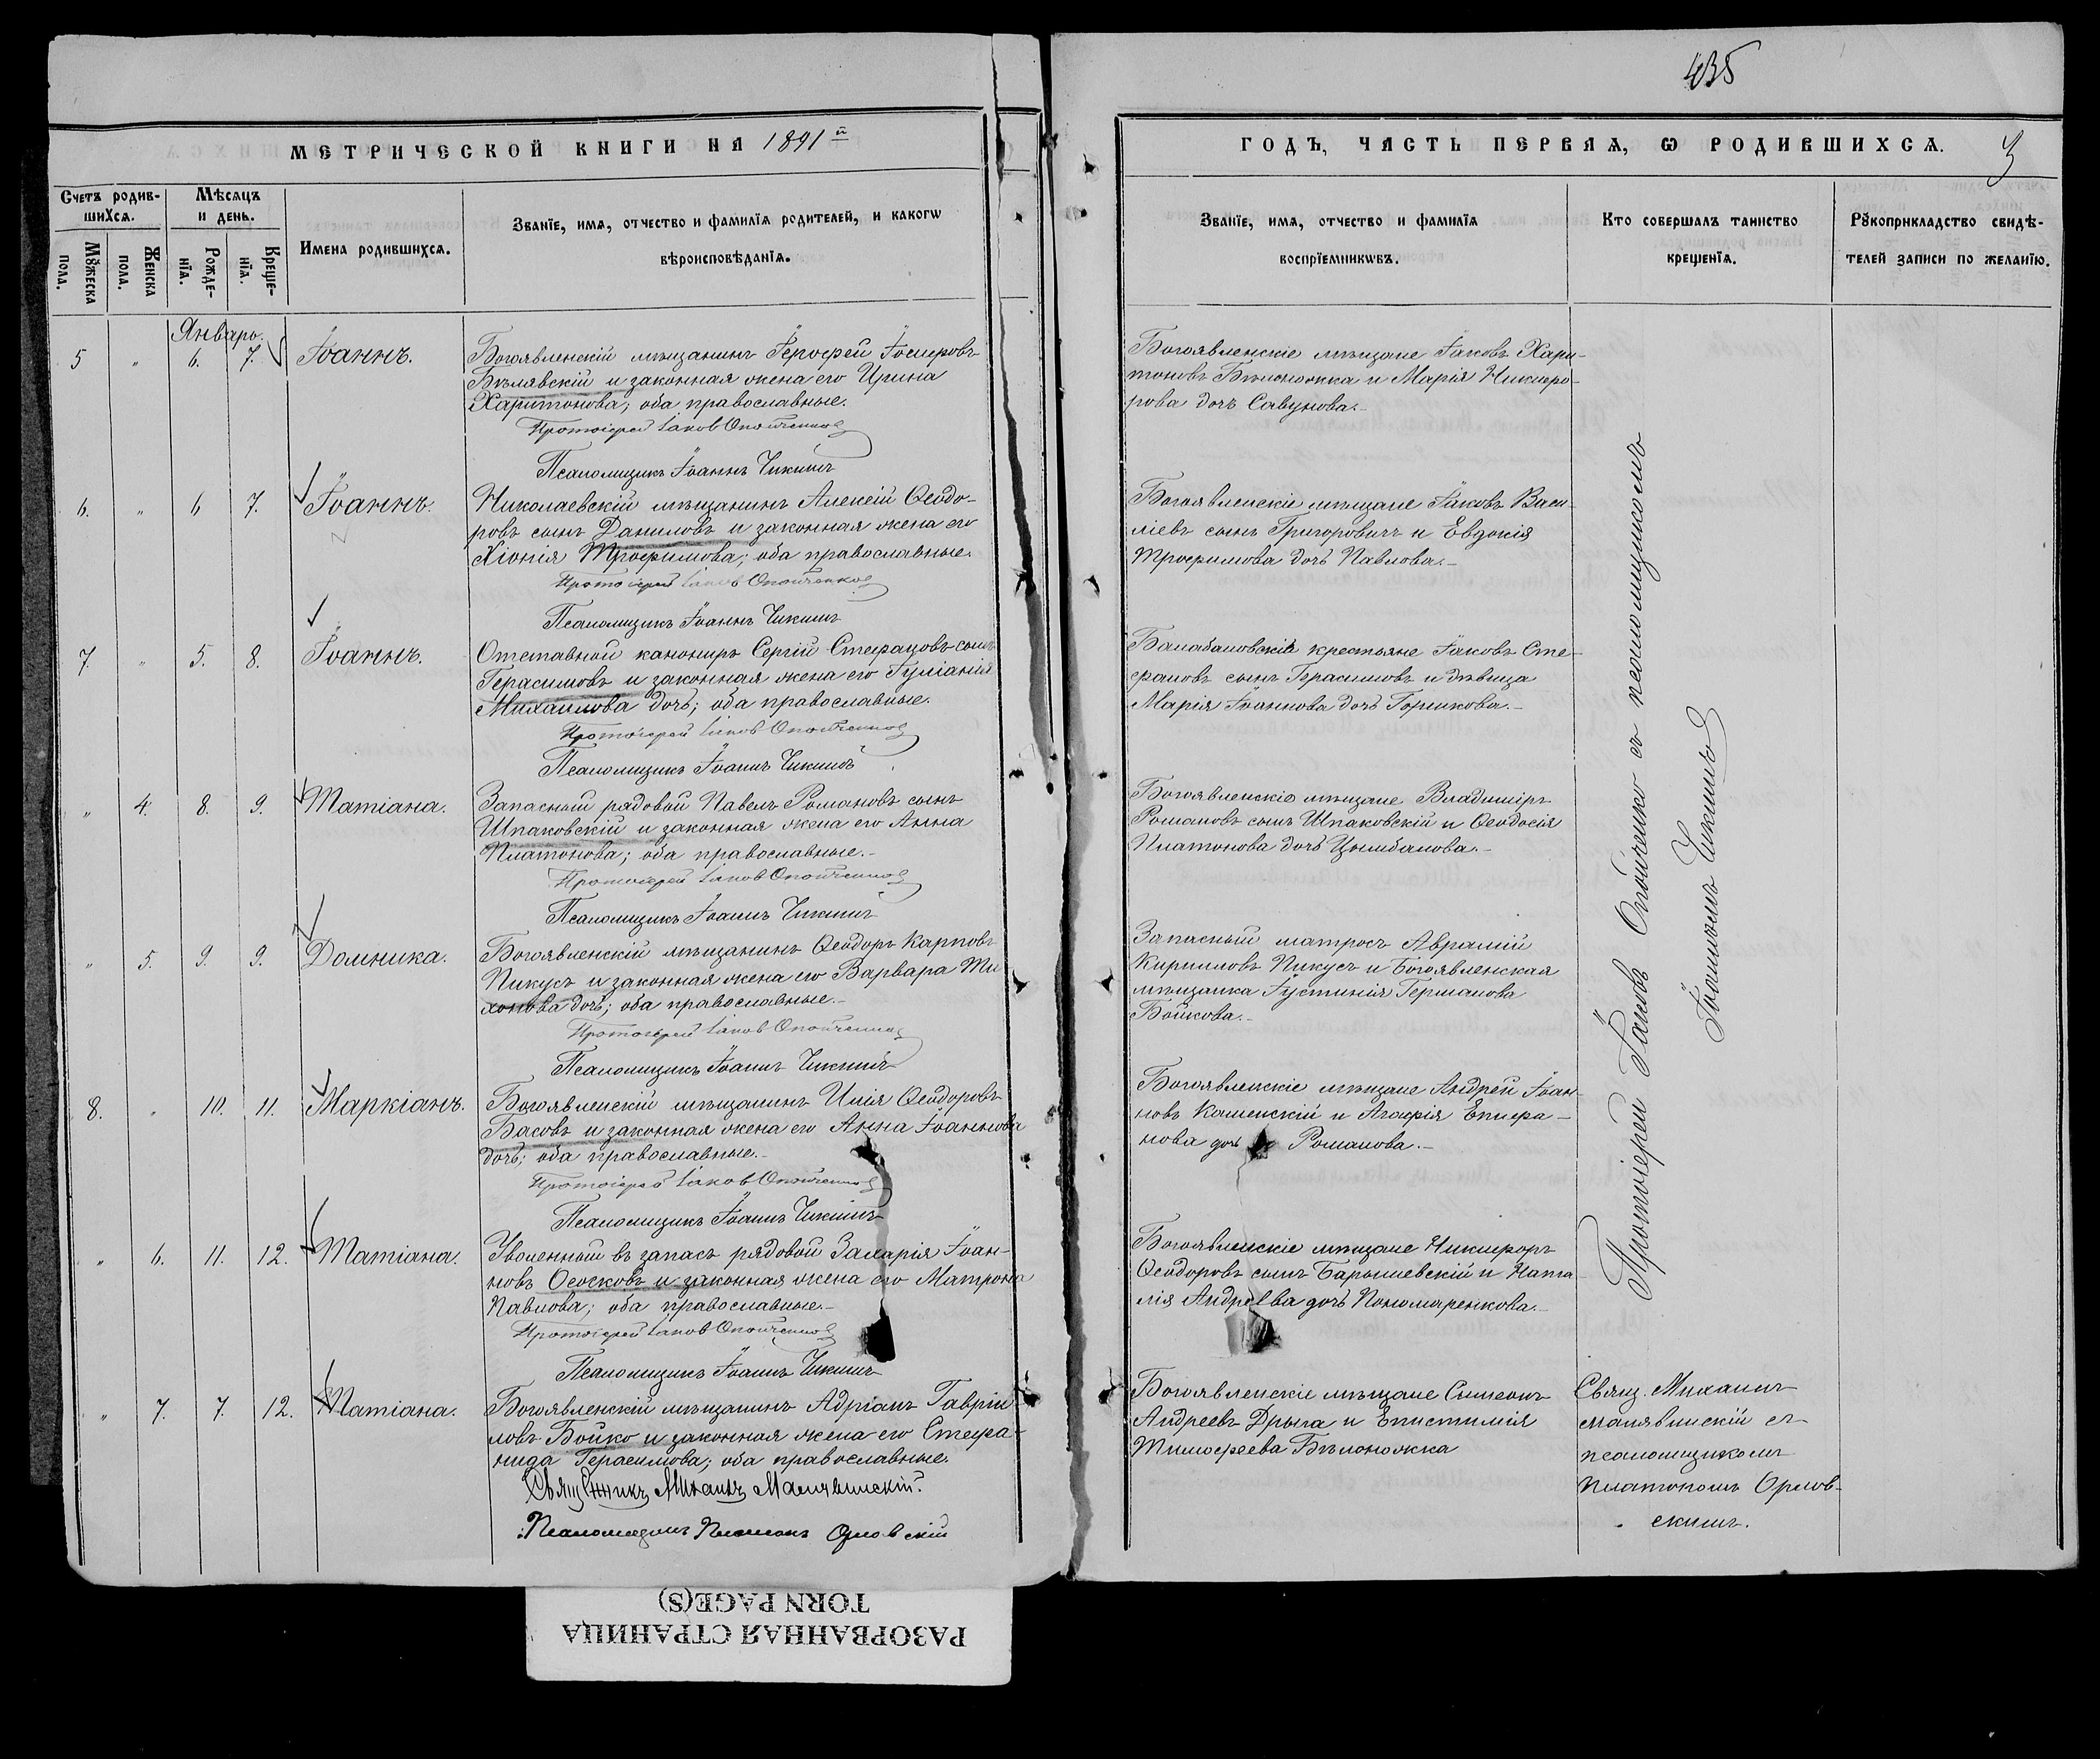 435
МЕТРИЧЕСКОЙ КНИГИ НА 1891й
ГОДЪ, ЧАСТЬ ПЕРВАЯ, Ѡ РОДИВШИХСѦ.
3
Счетъ родив-
шихсѧ.
Мѣсяцъ
и день.
Мꙋжеска
пола.
Женска
пола.
Рожде-
нїѧ.
Креще-
нїѧ.
Имена родившихсѧ.
Званїе, имѧ, отчество и фамилїѧ родителей, и какогѡ
вѣроисповѣданїѧ.
Званїе, имѧ, отчество и фамилїѧ
воспрїемникѡвъ.
Кто совершалъ таинство
крещенїѧ.
Рꙋкоприкладство свидѣ-
телей записи по желанїю.
Январь.
5 " 6. 7. Іоаннъ.
Богоявленскій мѣщанинъ Іероѳей Іосифовъ
Бѣлявскій и законная жена его Ирина
Харитонова; оба православные.
Протоіерей Іаковъ Опойченко
Псаломщикъ Іоаннъ Чикинъ
Богоявленскіе мѣщане Іаковъ Хари-
тоновъ Бѣлоножка и Марія Никифо-
рова дочь Савунова.
6. " 6 7. Іоаннъ.
Николаевскій мѣщанинъ Алексій Ѳеодо-
ровъ сынъ Даниловъ и законная жена его
Хіонія Трофимова; оба православные.
Протоіерей Іаковъ Опойченко
Псаломщикъ Іоаннъ Чикинъ
Богоявленскіе мѣщане Іаковъ Васи-
ліевъ сынъ Григоровичъ и Евдокія
Трофимова дочь Павлова.
7. " 5. 8. Іоаннъ.
Отставной канониръ Сергій Стефановъ сынъ
Герасимовъ и законная жена его Іуліанія
Михаилова дочь; оба православные.
Протоіерей Іаковъ Опойченко
Псаломщикъ Іоаннъ Чикинъ
Балабановскіе крестьяне Іаковъ Сте-
фановъ сынъ Герасимовъ и дѣвица
Марія Іоаннова дочь Горшкова.
" 4. 8. 9. Татіана.
Запасный рядовой Павелъ Романовъ сынъ
Шпаковскій и законная жена его Анна
Платонова; оба православные.
Протоіерей Іаковъ Опойченко
Псаломщикъ Іоаннъ Чикинъ
Богоявленскіе мѣщане Владиміръ
Романовъ сынъ Шпаковскій и Ѳеодосія
Платонова дочь Цымбалова.
" 5. 9. 9. Домника.
Богоявленскій мѣщанинъ Ѳеодоръ Карповъ
Пикусъ и законная жена его Варвара Ти-
хонова дочь; оба православные.
Протоіерей Іаковъ Опойченко
Псаломщикъ Іоаннъ Чикинъ
Запасный матросъ Аврамій
Кирилловъ Пикусъ и Богоявленская
мѣщанка Іустинія Германова
Бойкова.
8. " 10. 11. Маркіанъ.
Богоявленскій мѣщанинъ Илія Ѳеодоровъ
Басовъ и законная жена его Анна Іоаннова
дочь; оба православные.
Протоіерей Іаковъ Опойченко
Псаломщикъ Іоаннъ Чикинъ
Богоявленскіе мѣщане Андрей Іоан-
новъ Каменскій и Агафія Епифа-
нова дочь Романова.
" 6. 11. 12. Татіана.
Уволенный въ запасъ рядовой Захарія Іоан-
новъ Осочковъ и законная жена его Матрона
Павлова; оба православные.
Протоіерей Іаковъ Опойченко
Псаломщикъ Іоаннъ Чикинъ
Богоявленскіе мѣщане Никифоръ
Ѳеодоровъ сынъ Барышевскій и Ната-
лія Андреева дочь Пономаренкова.
Протоіерей Іаковъ Опойченко съ псаломщикомъ
Іоанномъ Чикинъ
" 7. 7. 12. Татіана.
Богоявленскій мѣщанинъ Адріанъ Гавріи-
ловъ Бойко и законная жена его Стефа-
нида Герасимова; оба православные.
Священникъ Михаилъ Малявинскій.
Псаломщикъ Платонъ Орловскій
Богоявленскіе мѣщане Сѵмеонъ
Андреевъ Дрыга и Епистимія
Тимоѳеева Бѣлоножка
Свящ. Михаилъ
Малявинскій съ
псаломщикомъ
Платономъ Орлов-
скимъ.
TORN PAGE(S)
РАЗОРВАННАЯ СТРАНИЦА